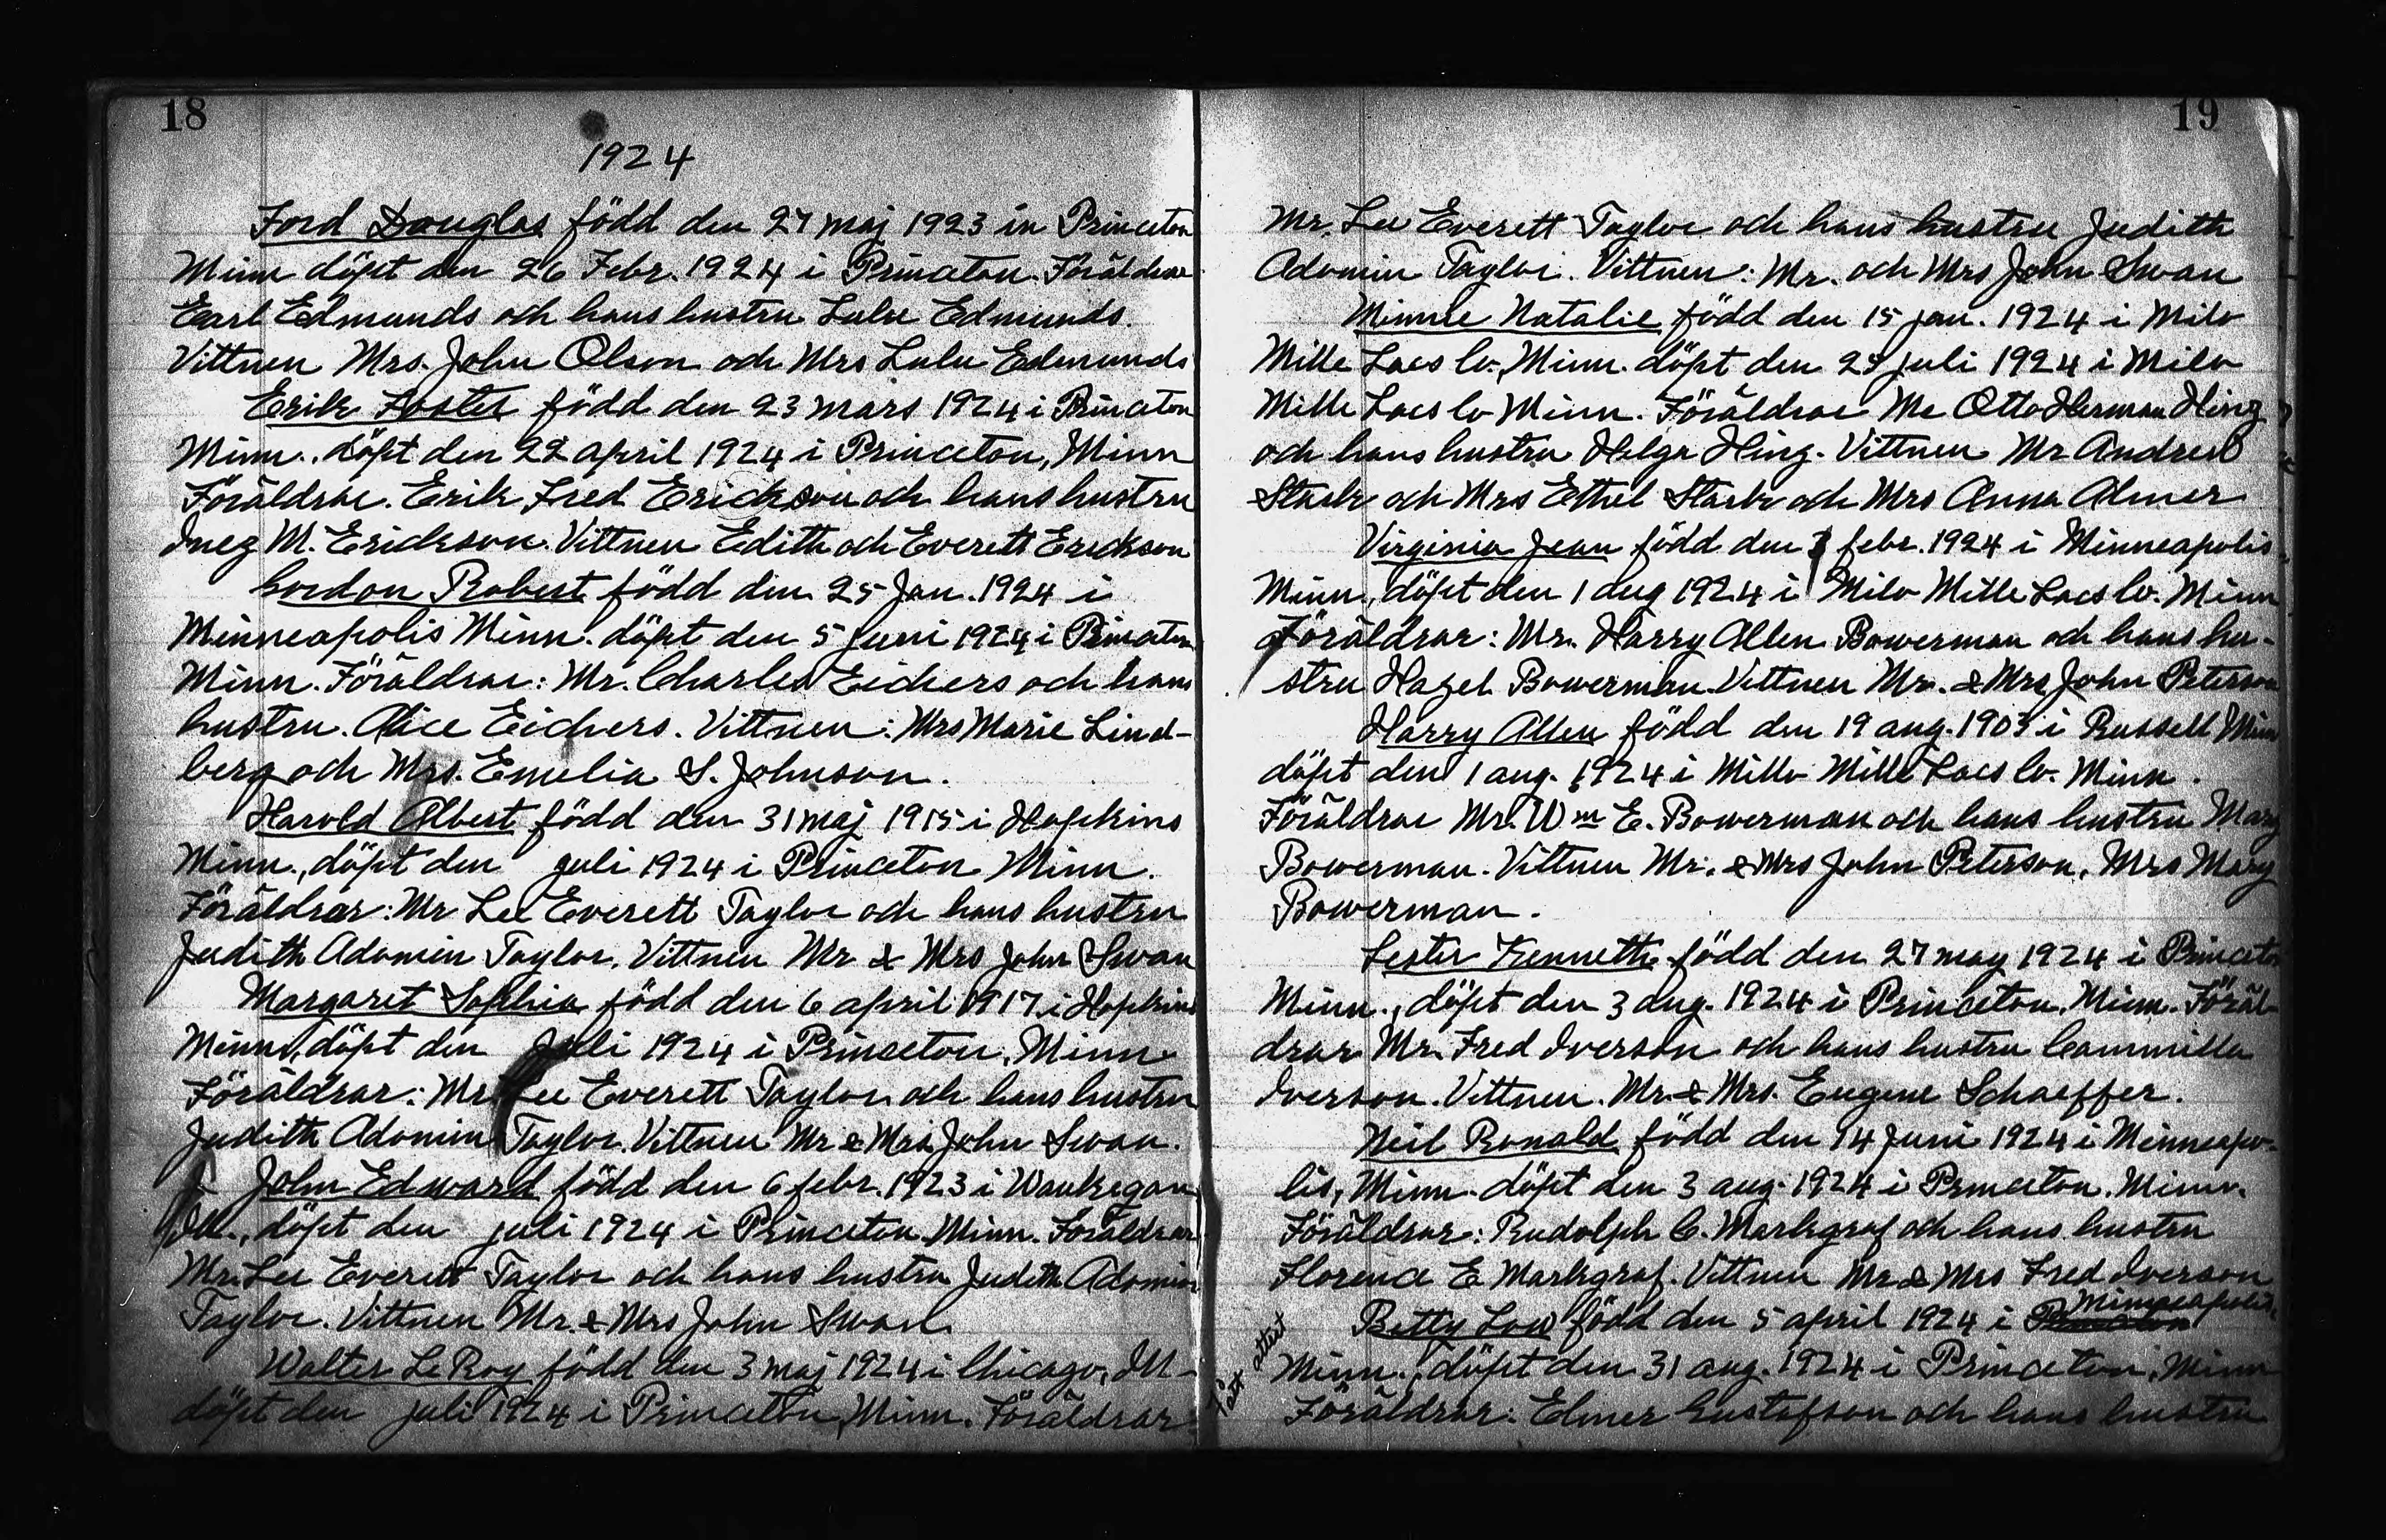 18
1924
Ford Douglas född den 27 maj 1923 in Princeton
Minn döpt den 26 Febr. 1924 i Princeton. Föräldrar
Earl Edmunds och hans hustru Lulu Edmunds.
Vittnen Mrs. John Olson och Mrs Lulu Edmunds
Erik Foster född den 23 mars 1924 i Princeton
Minn. döpt den 22 april 1924 i Princeton, Minn
Föräldrar. Erik Fred Erickson och hans hustru
Inez M. Erickson. Vittnen Edith och Everett Erickson
Gordon Robert född den 25 Jan. 1924 i
Minneapolis Minn. döpt den 5 juni 1924 i Princeton
Minn. Föräldrar: Mr. Charles Eichers och hans
hustru. Alice Eichers. Vittnen: Mrs Marie Lind-
berg och Mrs. Emelia S. Johnson.
Harold Albert född den 31 maj 1915 i Hopkins
Minn., döpt den juli 1924 i Princeton Minn.
Föräldrar: Mr Lee Everett Taylor och hans hustru
Judith Adomin Taylor. Vittnen Mr & Mrs John Swan
Margaret Sophia född den 6 april 1917 i Hopkins
Minn, döpt den Juli 1924 i Princeton, Minn
Föräldrar: Mr. Lee Everett Taylor och hans hustru
Judith Adomin Taylor. Vittnen Mr & Mrs John Swan.
John Edward född den 6 febr. 1923 i Waukegan
Ill., döpt den juli 1924 i Princeton Minn. Föräldrar
Mr. Lee Everett Taylor och hans hustru Judith Adomin
Taylor. Vittnen Mr. & Mrs John Swan
Walter LeRoy född den 3 maj 1924 i Chicago, Ill-
döpt den juli 1924 i Princeton, Minn. Föräldrar
19
Mr. Lee Everett Taylor och hans hustru Judith
Adomin Taylor. Vittnen: Mr. och Mrs John Swan
Minnie Natalie född den 15 jan. 1924 i Milo
Mille Lacs Co., Minn. döpt den 27 juli 1924 i Milo
Mille Lacs Co Minn. Föräldrar Mr Otto Herman Hing
och hans hustru Helga Hing. Vittnen Mr Andrew
Stark och Mrs Ethel Stark och Mrs Anna Almer
Virginia Jean född den febr. 1924 i Minneapolis
Minn, döpt den 1 aug 1924 i Milo Mille Lacs Co. Minn
Föräldrar: Mr. Harry Allen Bowerman och hans hu-
stru Hazel Bowerman Vittnen Mr. & Mrs John Peterson
Harry Allen född den 19 aug. 1903 i Russell Minn
döpt den 1 aug. 1924 i Millo Mille Lacs Co. Minn.
Föräldrar Mr. Wm E. Bowerman och hans hustru Mary
Bowerman. Vittnen Mr. & Mrs John Peterson, Mrs Mary
Bowerman.
Lester Kenneth född den 27 may 1924 i Princeton
Minn., döpt den 3 aug. 1924 i Princeton, Minn. Föräl-
drar Mr. Fred Iverson och hans hustru Cammilla
Iverson. Vittnen. Mr. & Mrs. Eugene Schaeffer.
Neil Ronald född den 14 juni 1924 i Minneapo-
lis, Minn. döpt den 3 aug. 1924 i Princeton. Minn.
Föräldrar: Rudolph C. Markgraf och hans hustru
Florence E Markgraf. Vittnen Mr & Mrs Fred Iverson
Betty Lou född den 5 april 1924 i Minneapolis
Minn., döpt den 31 aug. 1924 i Princeton, Minn
Föräldrar: Elmer Gustafson och hans hustru